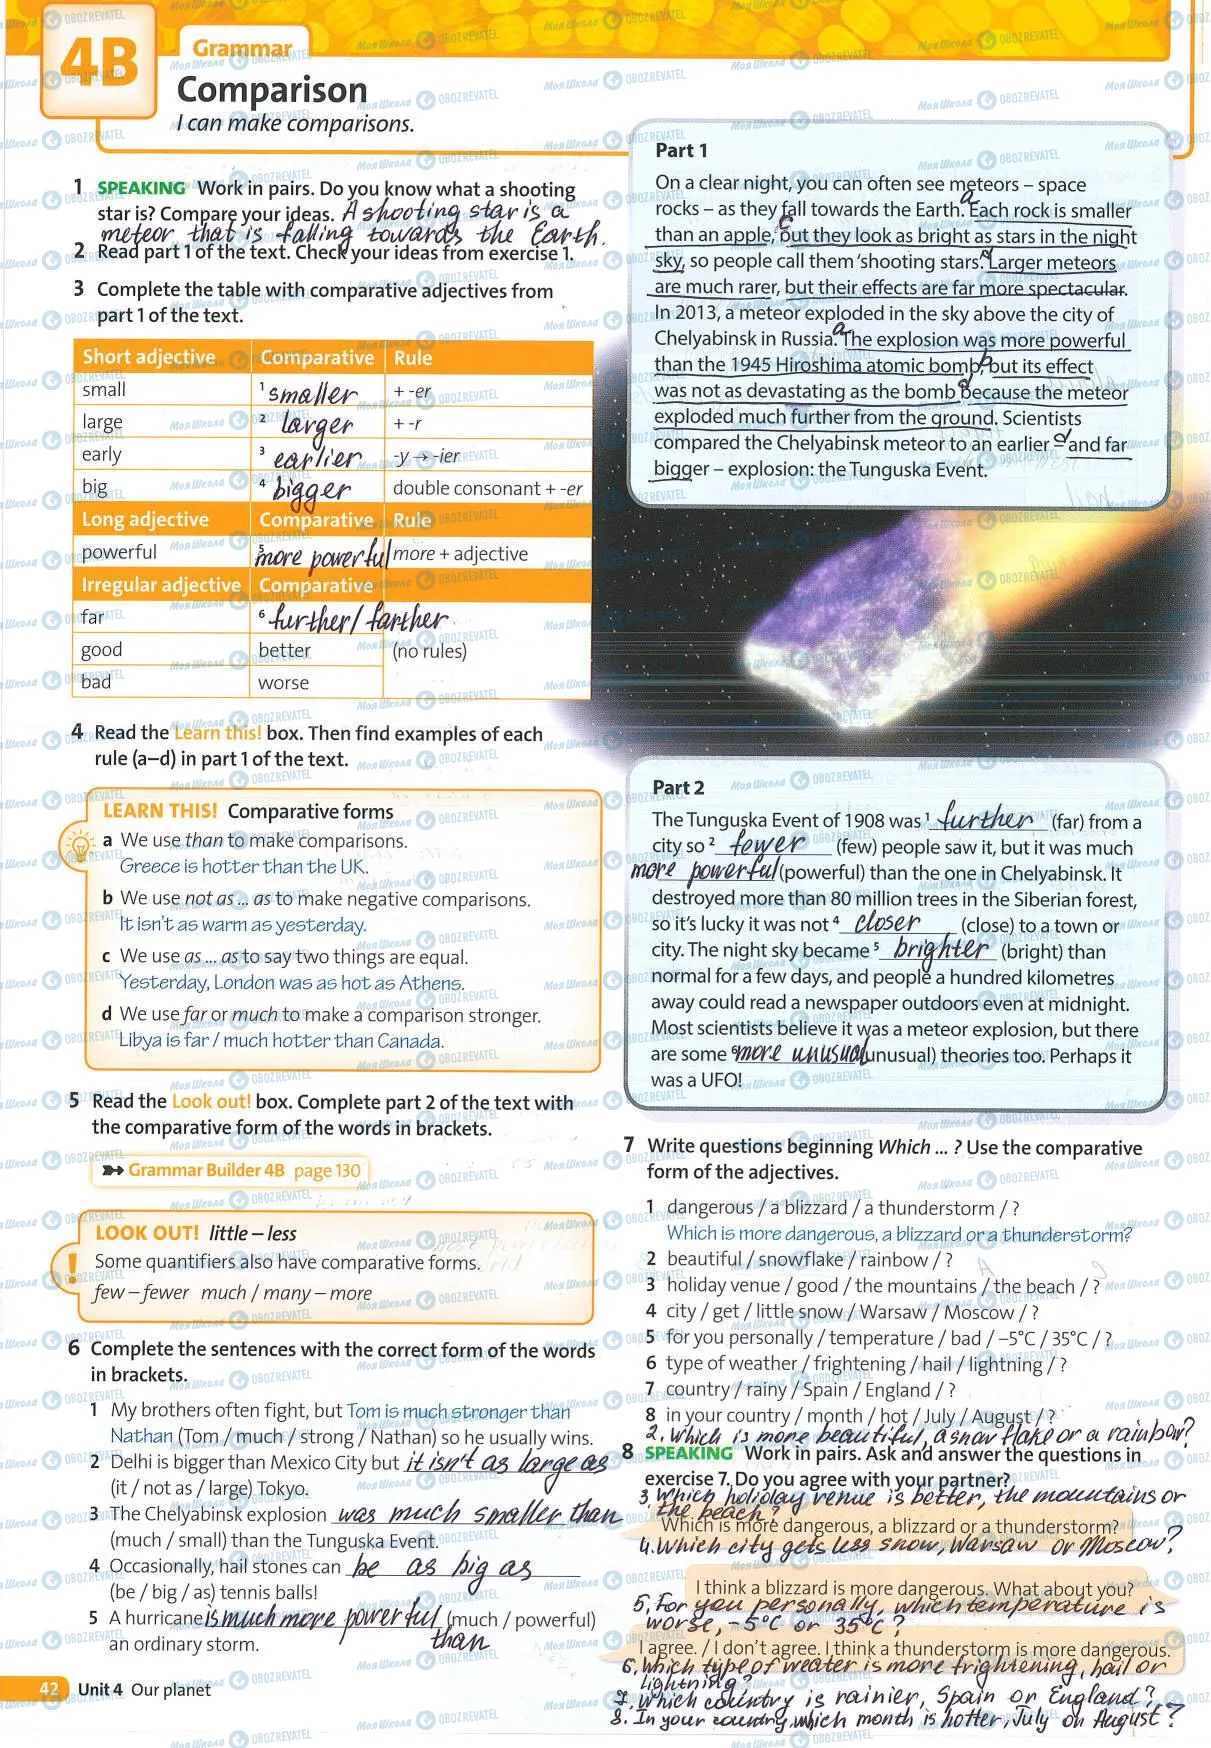 4B
Grammar
Comparison
I can make comparisons.
1 SPEAKING Work in pairs. Do you know what a shooting
star is? Compare your ideas. A shooting star is a
meteor that is falling towards the Earth.
2 Read part 1 of the text. Check your ideas from exercise 1.
3 Complete the table with comparative adjectives from
part 1 of the text.
Short adjective Comparative Rule
small 1 smaller + -er
large 2 larger + -r
early 3 earlier -y → -ier
big 4 bigger double consonant + -er
Long adjective Comparative Rule
powerful 5 more powerful more + adjective
Irregular adjective Comparative
far 6 further/ farther
good better (no rules)
bad worse
4 Read the Learn this! box. Then find examples of each
rule (a–d) in part 1 of the text.
LEARN THIS! Comparative forms
a We use than to make comparisons.
Greece is hotter than the UK.
b We use not as ... as to make negative comparisons.
It isn't as warm as yesterday.
c We use as ... as to say two things are equal.
Yesterday, London was as hot as Athens.
d We use far or much to make a comparison stronger.
Libya is far / much hotter than Canada.
5 Read the Look out! box. Complete part 2 of the text with
the comparative form of the words in brackets.
Grammar Builder 4B page 130
LOOK OUT! little – less
Some quantifiers also have comparative forms.
few – fewer much / many – more
6 Complete the sentences with the correct form of the words
in brackets.
1 My brothers often fight, but Tom is much stronger than
Nathan (Tom / much / strong / Nathan) so he usually wins.
2 Delhi is bigger than Mexico City but it isn't as large as
(it / not as / large) Tokyo.
3 The Chelyabinsk explosion was much smaller than
(much / small) than the Tunguska Event.
4 Occasionally, hail stones can be as big as
(be / big / as) tennis balls!
5 A hurricane is much more powerful (much / powerful)
an ordinary storm. than
42 Unit 4 Our planet
Part 1
On a clear night, you can often see meteors – space
rocks – as they fall towards the Earth. a Each rock is smaller
than an apple, c but they look as bright as stars in the night
sky, so people call them 'shooting stars'. d Larger meteors
are much rarer, but their effects are far more spectacular.
In 2013, a meteor exploded in the sky above the city of
Chelyabinsk in Russia. a The explosion was more powerful
than the 1945 Hiroshima atomic bomb, b but its effect
was not as devastating as the bomb d because the meteor
exploded much further from the ground. Scientists
compared the Chelyabinsk meteor to an earlier – d and far
bigger – explosion: the Tunguska Event.
Part 2
The Tunguska Event of 1908 was 1 further (far) from a
city so 2 fewer (few) people saw it, but it was much
more powerful (powerful) than the one in Chelyabinsk. It
destroyed more than 80 million trees in the Siberian forest,
so it's lucky it was not 4 closer (close) to a town or
city. The night sky became 5 brighter (bright) than
normal for a few days, and people a hundred kilometres
away could read a newspaper outdoors even at midnight.
Most scientists believe it was a meteor explosion, but there
are some 6 more unusual (unusual) theories too. Perhaps it
was a UFO!
7 Write questions beginning Which ... ? Use the comparative
form of the adjectives.
1 dangerous / a blizzard / a thunderstorm / ?
Which is more dangerous, a blizzard or a thunderstorm?
2 beautiful / snowflake / rainbow / ?
3 holiday venue / good / the mountains / the beach / ?
4 city / get / little snow / Warsaw / Moscow / ?
5 for you personally / temperature / bad / –5°C / 35°C / ?
6 type of weather / frightening / hail / lightning / ?
7 country / rainy / Spain / England / ?
8 in your country / month / hot / July / August / ?
2. Which is more beautiful, a snowflake or a rainbow?
8 SPEAKING Work in pairs. Ask and answer the questions in
exercise 7. Do you agree with your partner?
3. Which holiday venue is better, the mountains or
the beach?
Which is more dangerous, a blizzard or a thunderstorm?
4. Which city gets less snow, Warsaw or Moscow?
I think a blizzard is more dangerous. What about you?
5. For you personally, which temperature is
worse, -5°C or 35°C?
I agree. / I don't agree. I think a thunderstorm is more dangerous.
6. Which type of weater is more frightening, hail or
lightning?
7. Which country is rainier, Spain or England?
8. In your country, which month is hotter, July or August?
Моя Школа OBOZREVATEL